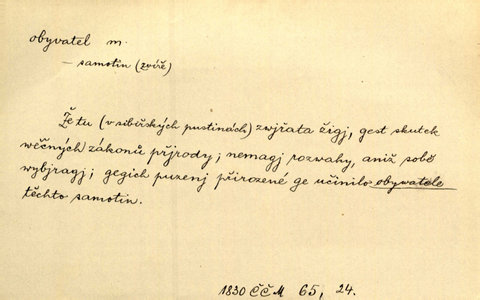 obyvatel m.
– samotin (zvíře)
Že tu (v sibiřských pustinách) zwjřata žigj, gest skutek
wěčných zákonů přjrody; nemagj rozwahy, aniž sobě
wybjragj; gegich puzenj přirozené ge učinilo obywatele
těchto samotin.
1830 ČČM 65, 24.